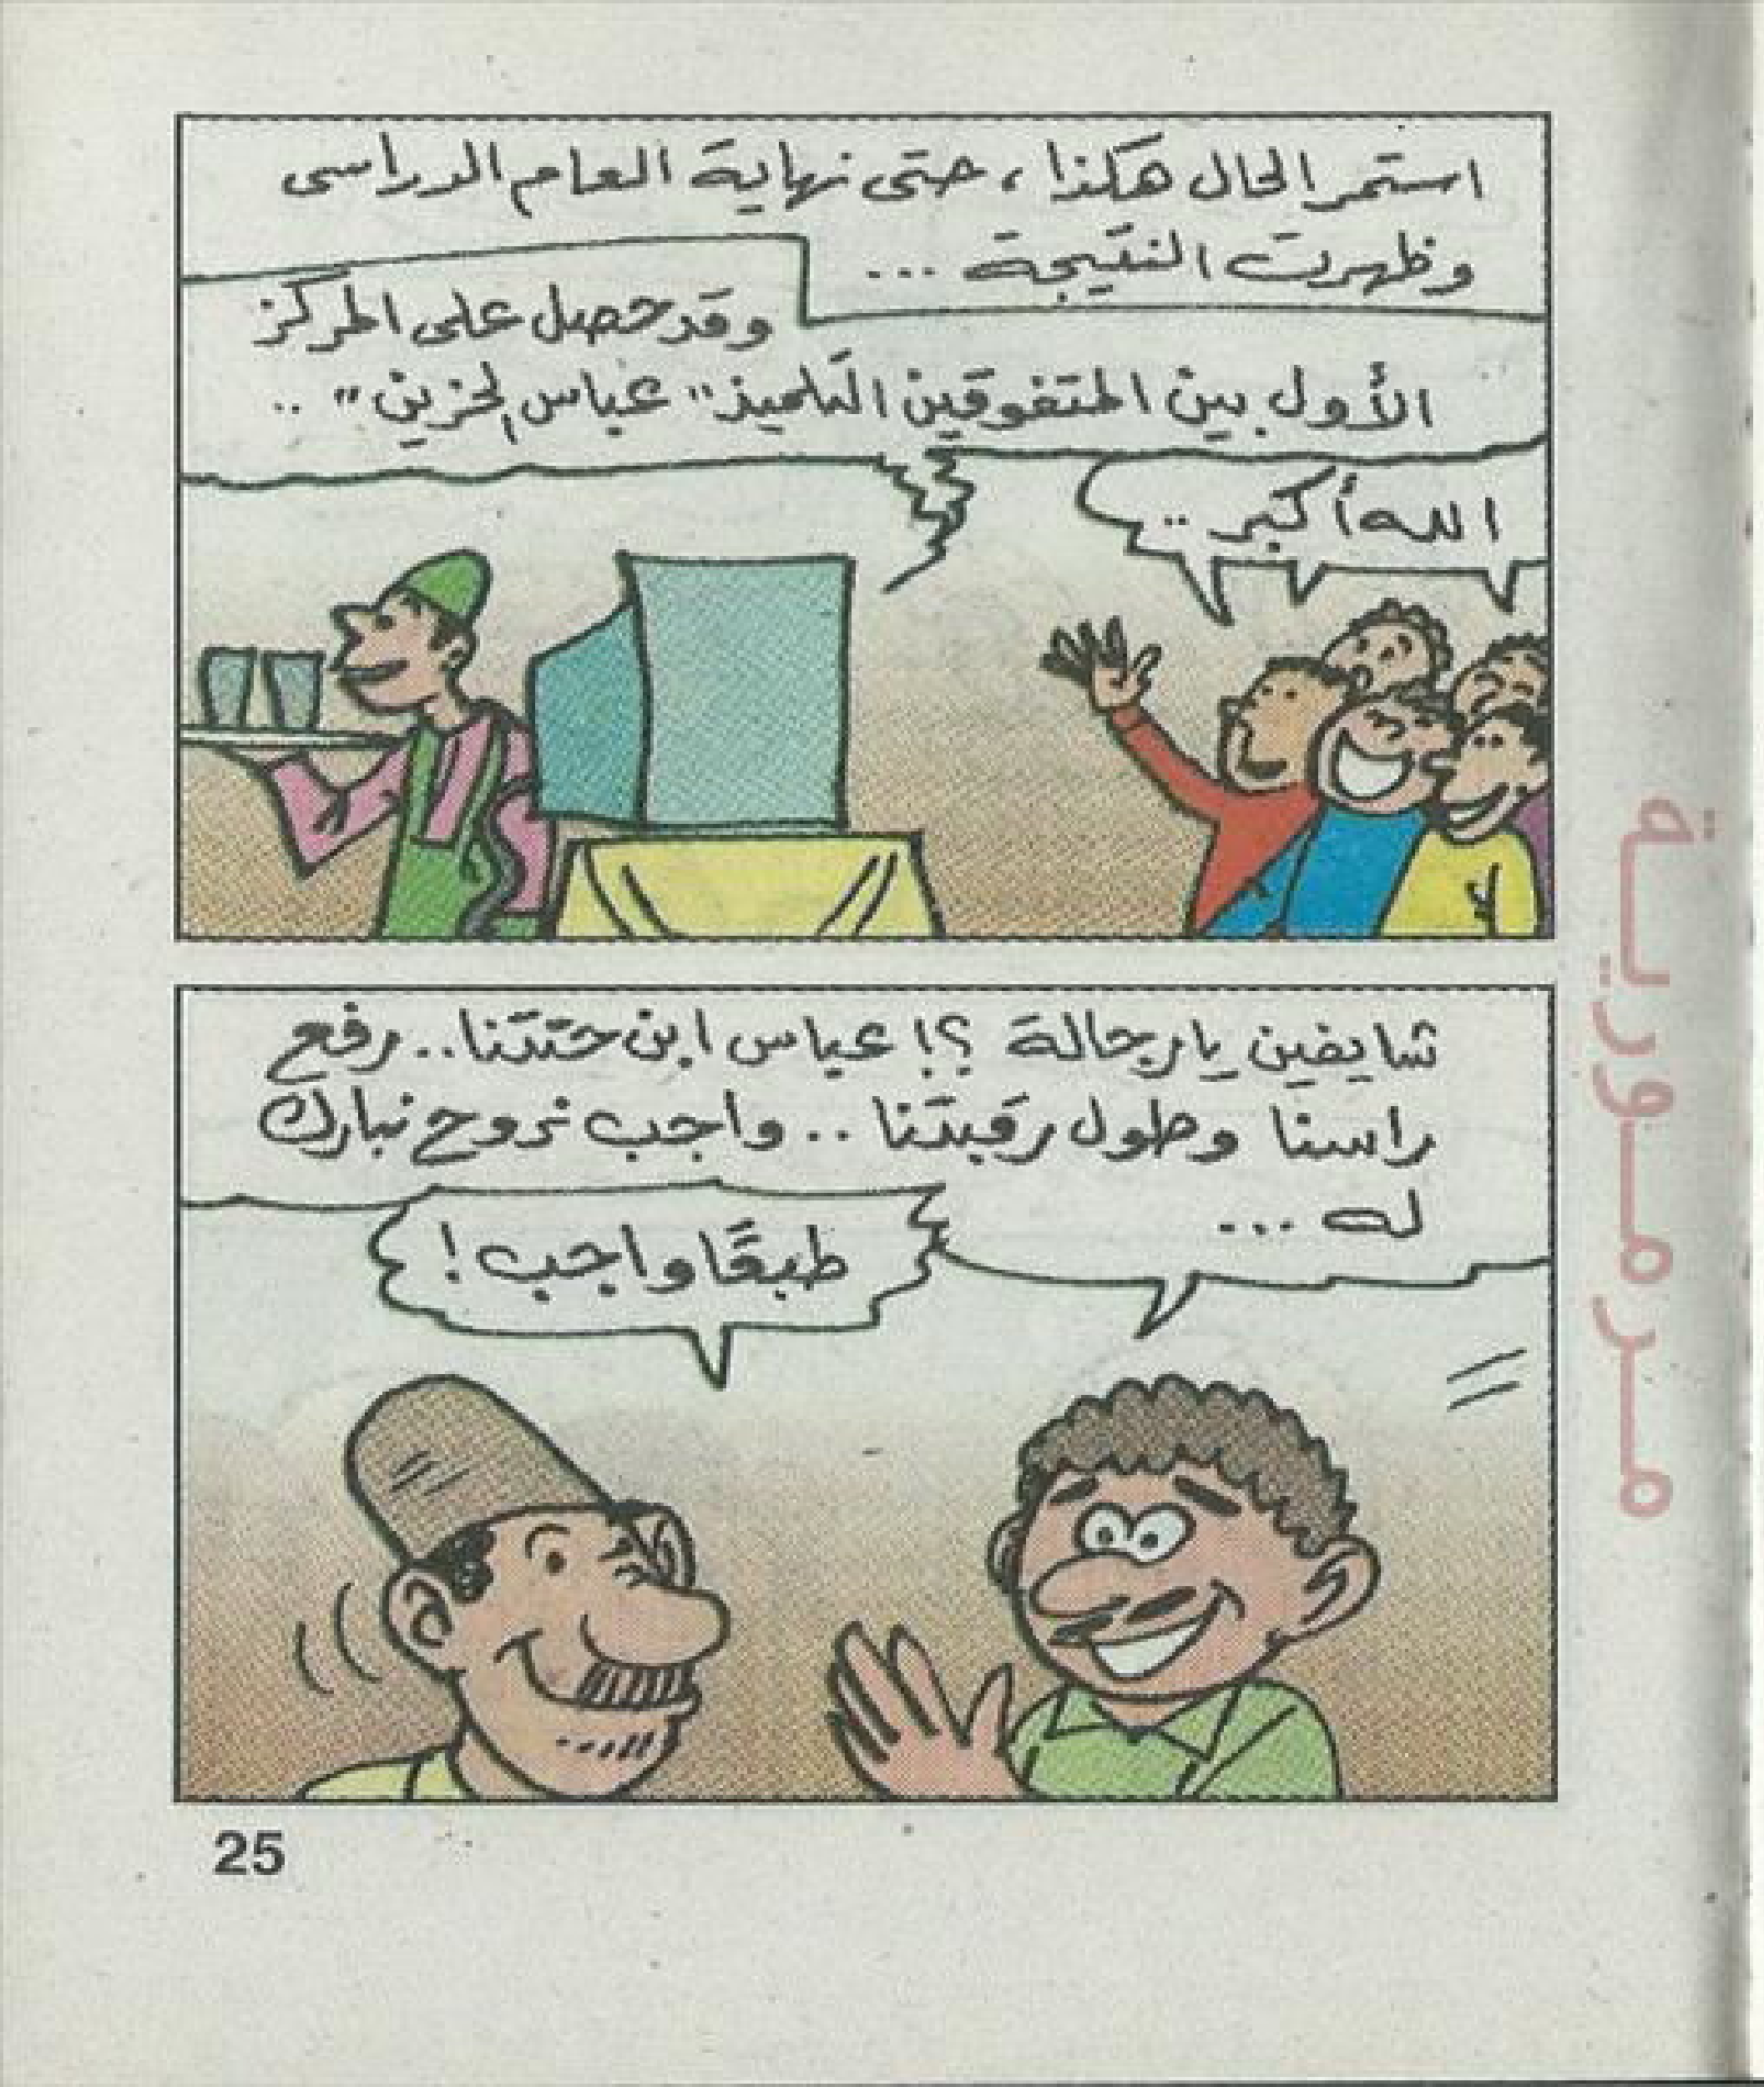 استمر الحال هكذا، حتى نهاية العام الدراسى
وظهرت النتيجة ...
وقد حصل على المركز
الأول بين المتفوقين التلميذ "عباس الحزين" ..
الله أكبر ..
شايفين يا رجالة ؟! عباس ابن حتتنا .. رفع
راسنا وطول رقبتنا .. واجب نروح نبارك
له ...
طبعًا واجب !
25
مرمورية